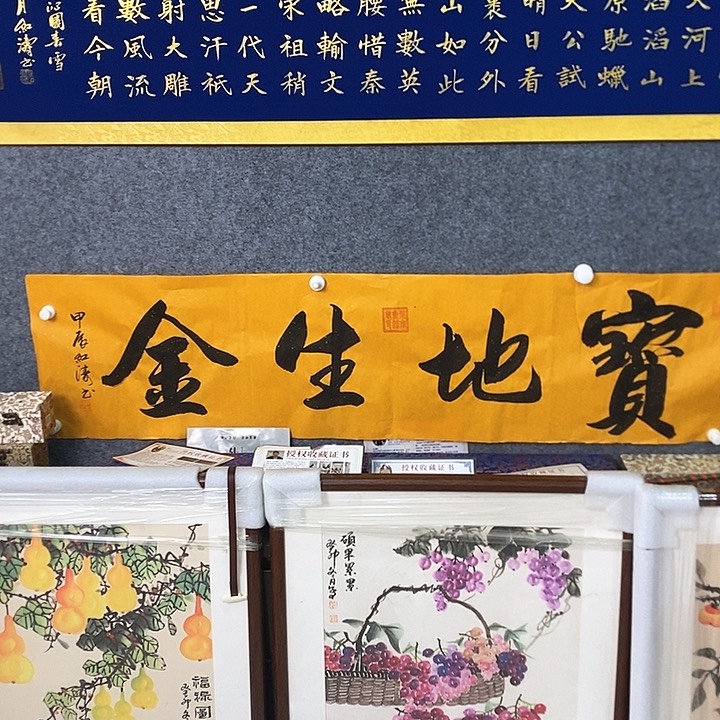 大河上
滔滔山
原馳蠟
天公試
晴日看
裹分外
山如此
無數英
腰惜秦
略輸文
宋祖稍
一代天
思汗祗
射大雕
數風流
看今朝
沁園春雪
月紅濤书
寶地生金
甲辰紅濤书
授权收藏证书
授权收藏证书
碩果累累
癸卯冬月
福祿圖
癸卯